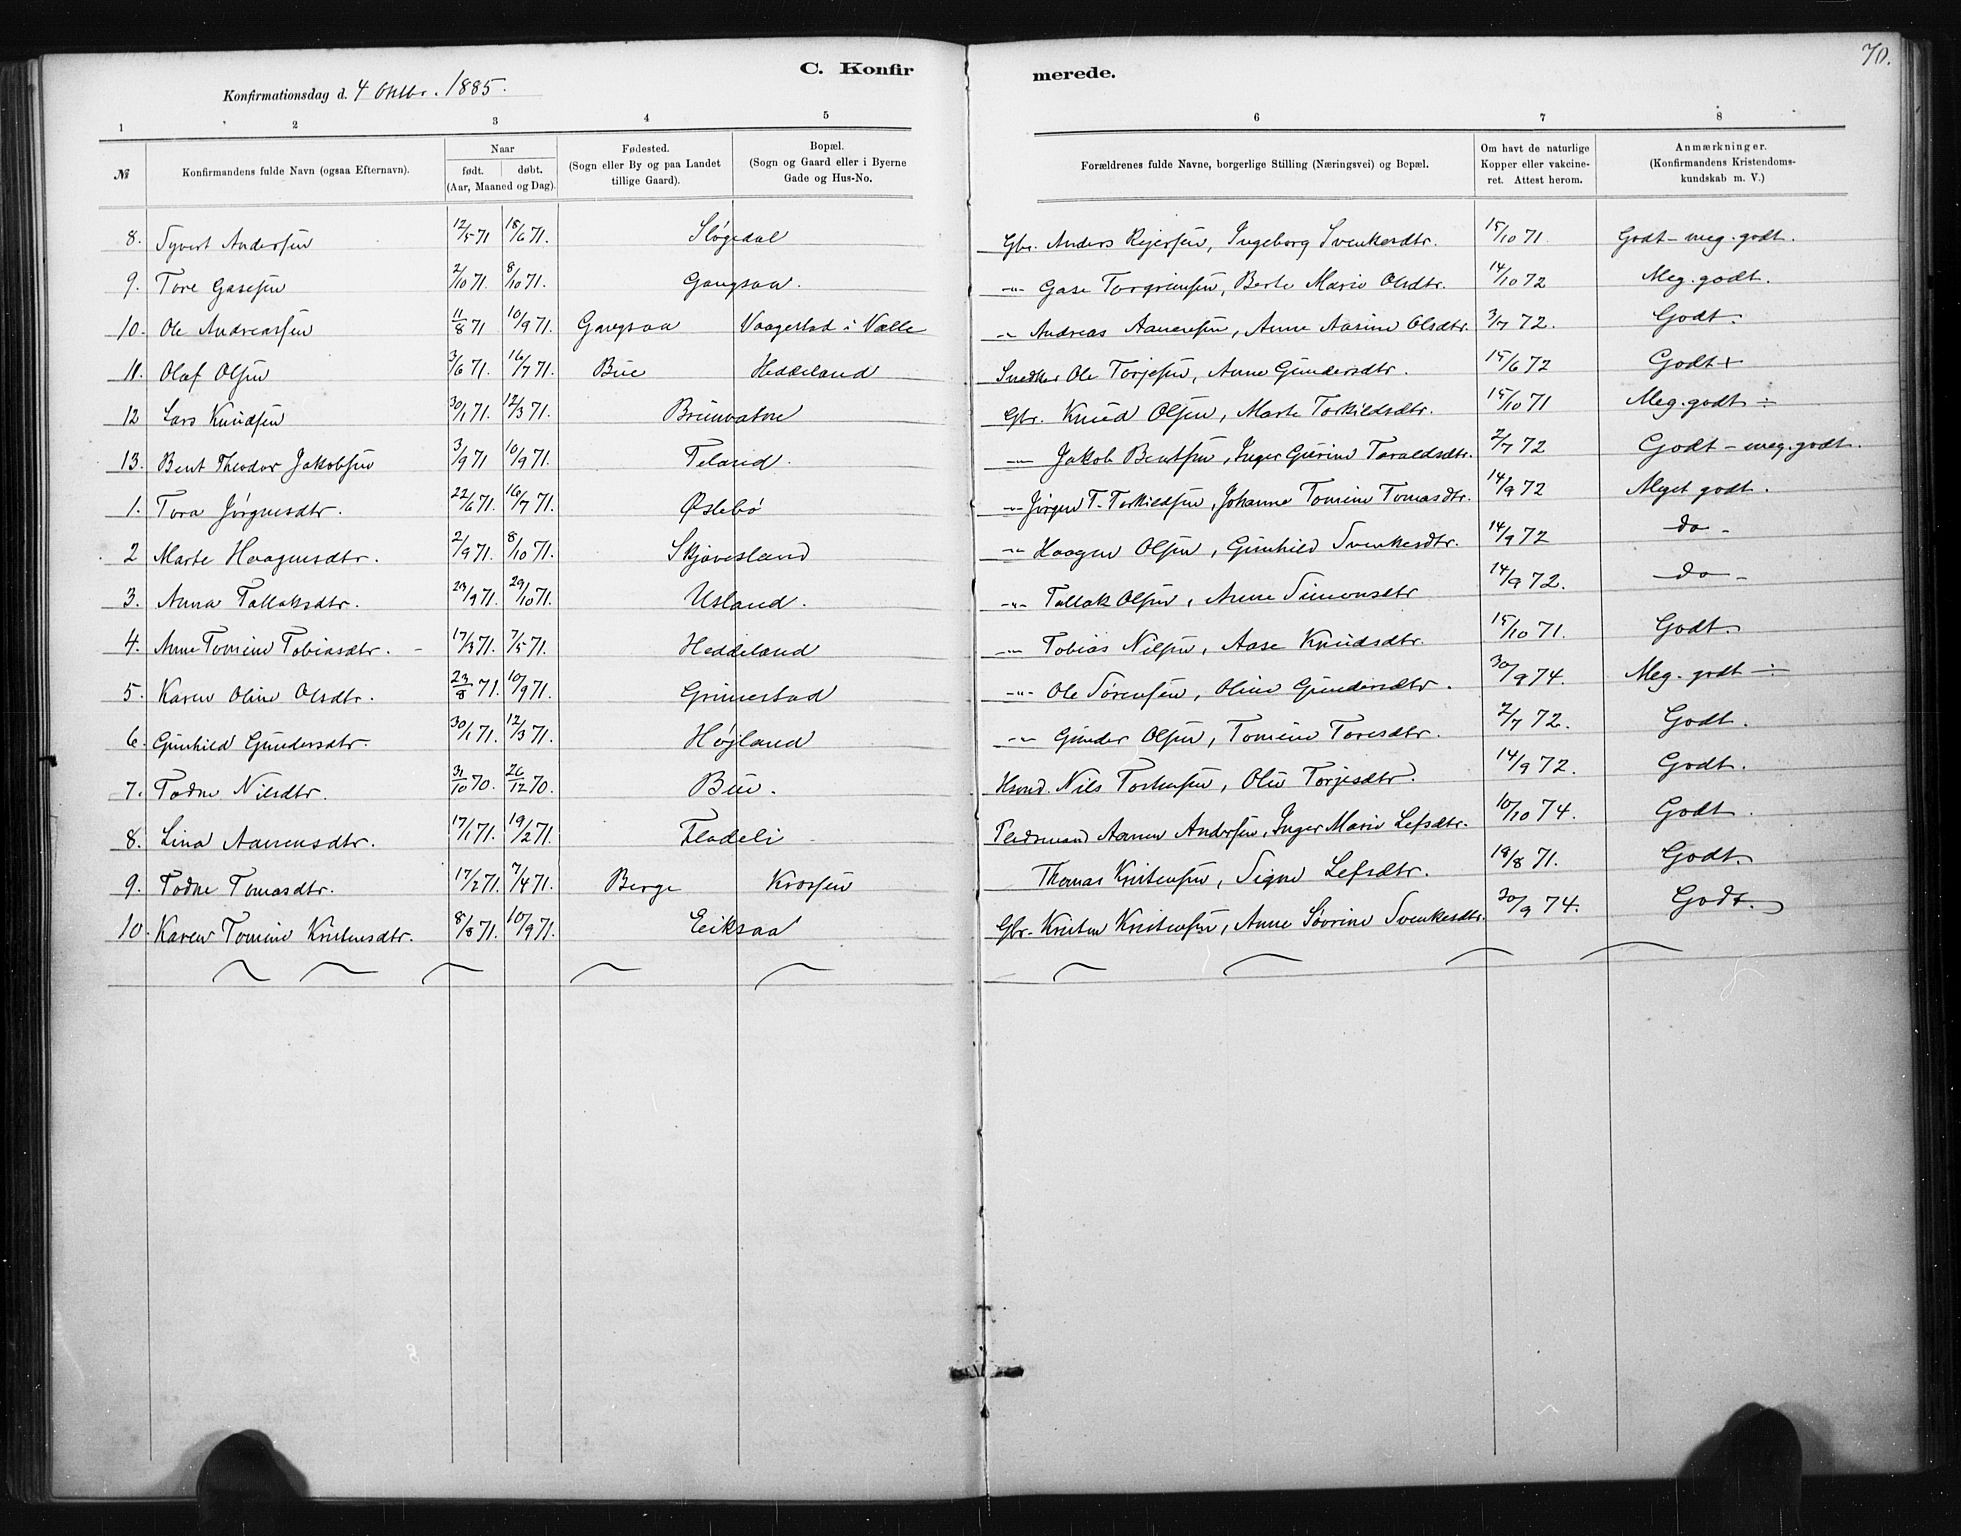 70.
C. Konfirmerede.
Konfirmationsdag d. 4 Oktbr. 1885.
1 2 3 4 5 6 7 8
№ | Konfirmandens fulde Navn (ogsaa Efternavn). | Naar født. døbt. (Aar, Maaned og Dag). | Fødested. (Sogn eller By og paa Landet tillige Gaard). | Bopæl. (Sogn og Gaard eller i Byerne Gade og Hus-No. | Forældrenes fulde Navne, borgerlige Stilling (Næringsvei) og Bopæl. | Om havt de naturlige Kopper eller vakcineret. Attest herom. | Anmærkninger. (Konfirmandens Kristendomskundskab m. V.)
8. Syvert Andersen 12/5 71 18/6 71. Sløgedal Gbr. Anders Rejersen, Ingeborg Svenkesdtr. 15/10 71. Godt - meg. godt.
9. Tore Gasesen 2/10 71. 8/10 71. Gangsaa. -"- Gase Torgrimsen, Berte Marie Olsdtr. 14/10 72 Meg. godt.
10. Ole Andreassen 11/8 71 10/9 71. Gangsaa Vaagestad i Vælle -"- Andreas Aanensen, Anne Aasine Olsdtr. 3/7 72. Godt.
11. Olaf Olsen 3/6 71. 16/7 71. Bue Heddeland Snedker Ole Torjesen, Anne Gundersdtr. 15/6 72 Godt +
12 Lars Knudsen 30/1 71. 12/3 71. Brunvatne Gbr. Knud Olsen, Marte Torkildsdtr. 15/10 71 Meg. godt ÷
13. Bent Theodor Jakobsen 3/9 71 10/9 71. Feland. -"- Jakob Bentsen, Inger Gurine Taraldsdtr. 2/7 72 Godt - meg. godt.
1. Tora Jørgnesdtr. 22/6 71. 16/7 71. Øslebø -"- Jørgen T. Torkildsen, Johanne Tomine Tomasdtr. 14/9 72 Meget godt.
2 Marte Haagensdtr. 2/9 71. 8/10 71. Skjævesland -"- Haagen Olsen, Gunhild Svenkesdtr. 14/9 72 do -
3. Anna Tallaksdtr. 23/9 71. 29/10 71. Usland. -"- Tallak Olsen, Anne Simonsdtr 14/9 72. do -
4. Anne Tomine Tobiasdtr. - 17/3 71. 7/5 71. Heddeland -"- Tobias Nilsen, Aase Knudsdtr. 15/10 71. Godt.
5. Karen Oline Olsdtr. 23/8 71. 10/9 71. Grimestad -"- Ole Sørensen, Oline Gundersdtr. 30/9 74. Meg. godt ÷
6. Gunhild Gundersdtr. 30/1 71. 12/3 71. Højland -"- Gunder Olsen, Tomine Toresdtr. 2/7 72. Godt.
7. Todne Nilsdtr. 31/10 70. 26/12 70. Bue. Husmd. Nils Torkelsen, Olu Torjesdtr. 14/9 72. Godt.
8. Lina Aanensdtr. 17/1 71. 19/2 71. Fladeli Aanen Andersen, Inger Marie Lefsdtr. 10/10 74. Godt.
9. Todne Tomasdtr. 17/2 71. 7/4 71. Berge Krossen Thomas Kristensen, Signe Lefsdtr. 18/8 71. Godt.
10. Karen Tomine Kristensdtr. 8/8 71. 10/9 71. Eiksaa Gbr. Kristen Kristensen, Anne Sovrine Svenkesdtr. 30/9 74. Godt.